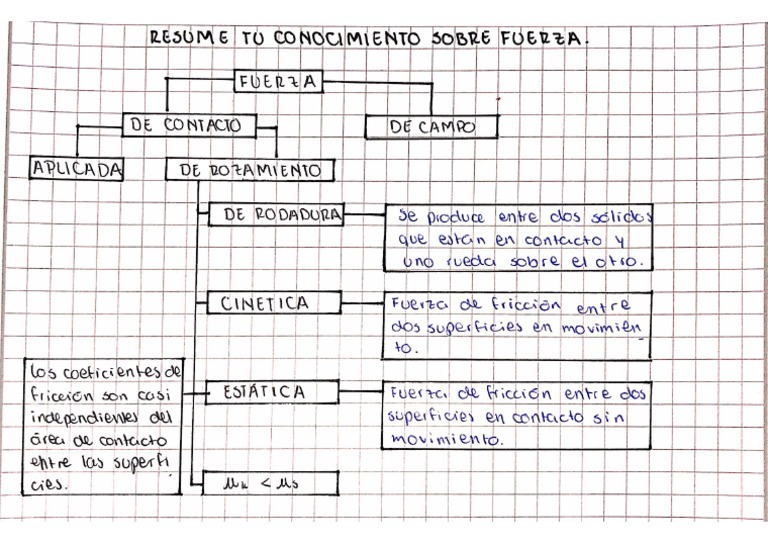 RESUME TU CONOCIMIENTO SOBRE FUERZA.
FUERZA
DE CONTACTO
DE CAMPO
APLICADA
DE ROZAMIENTO
DE RODADURA
Se produce entre dos sólidos
que están en contacto y
uno rueda sobre el otro.
CINETICA
Fuerza de fricción entre
dos superficies en movimien
to.
los coeficientes de
fricción son casi
independientes del
área de contacto
entre las superfi
cies.
ESTÁTICA
Fuerza de fricción entre dos
superficies en contacto sin
movimiento.
μk < μs